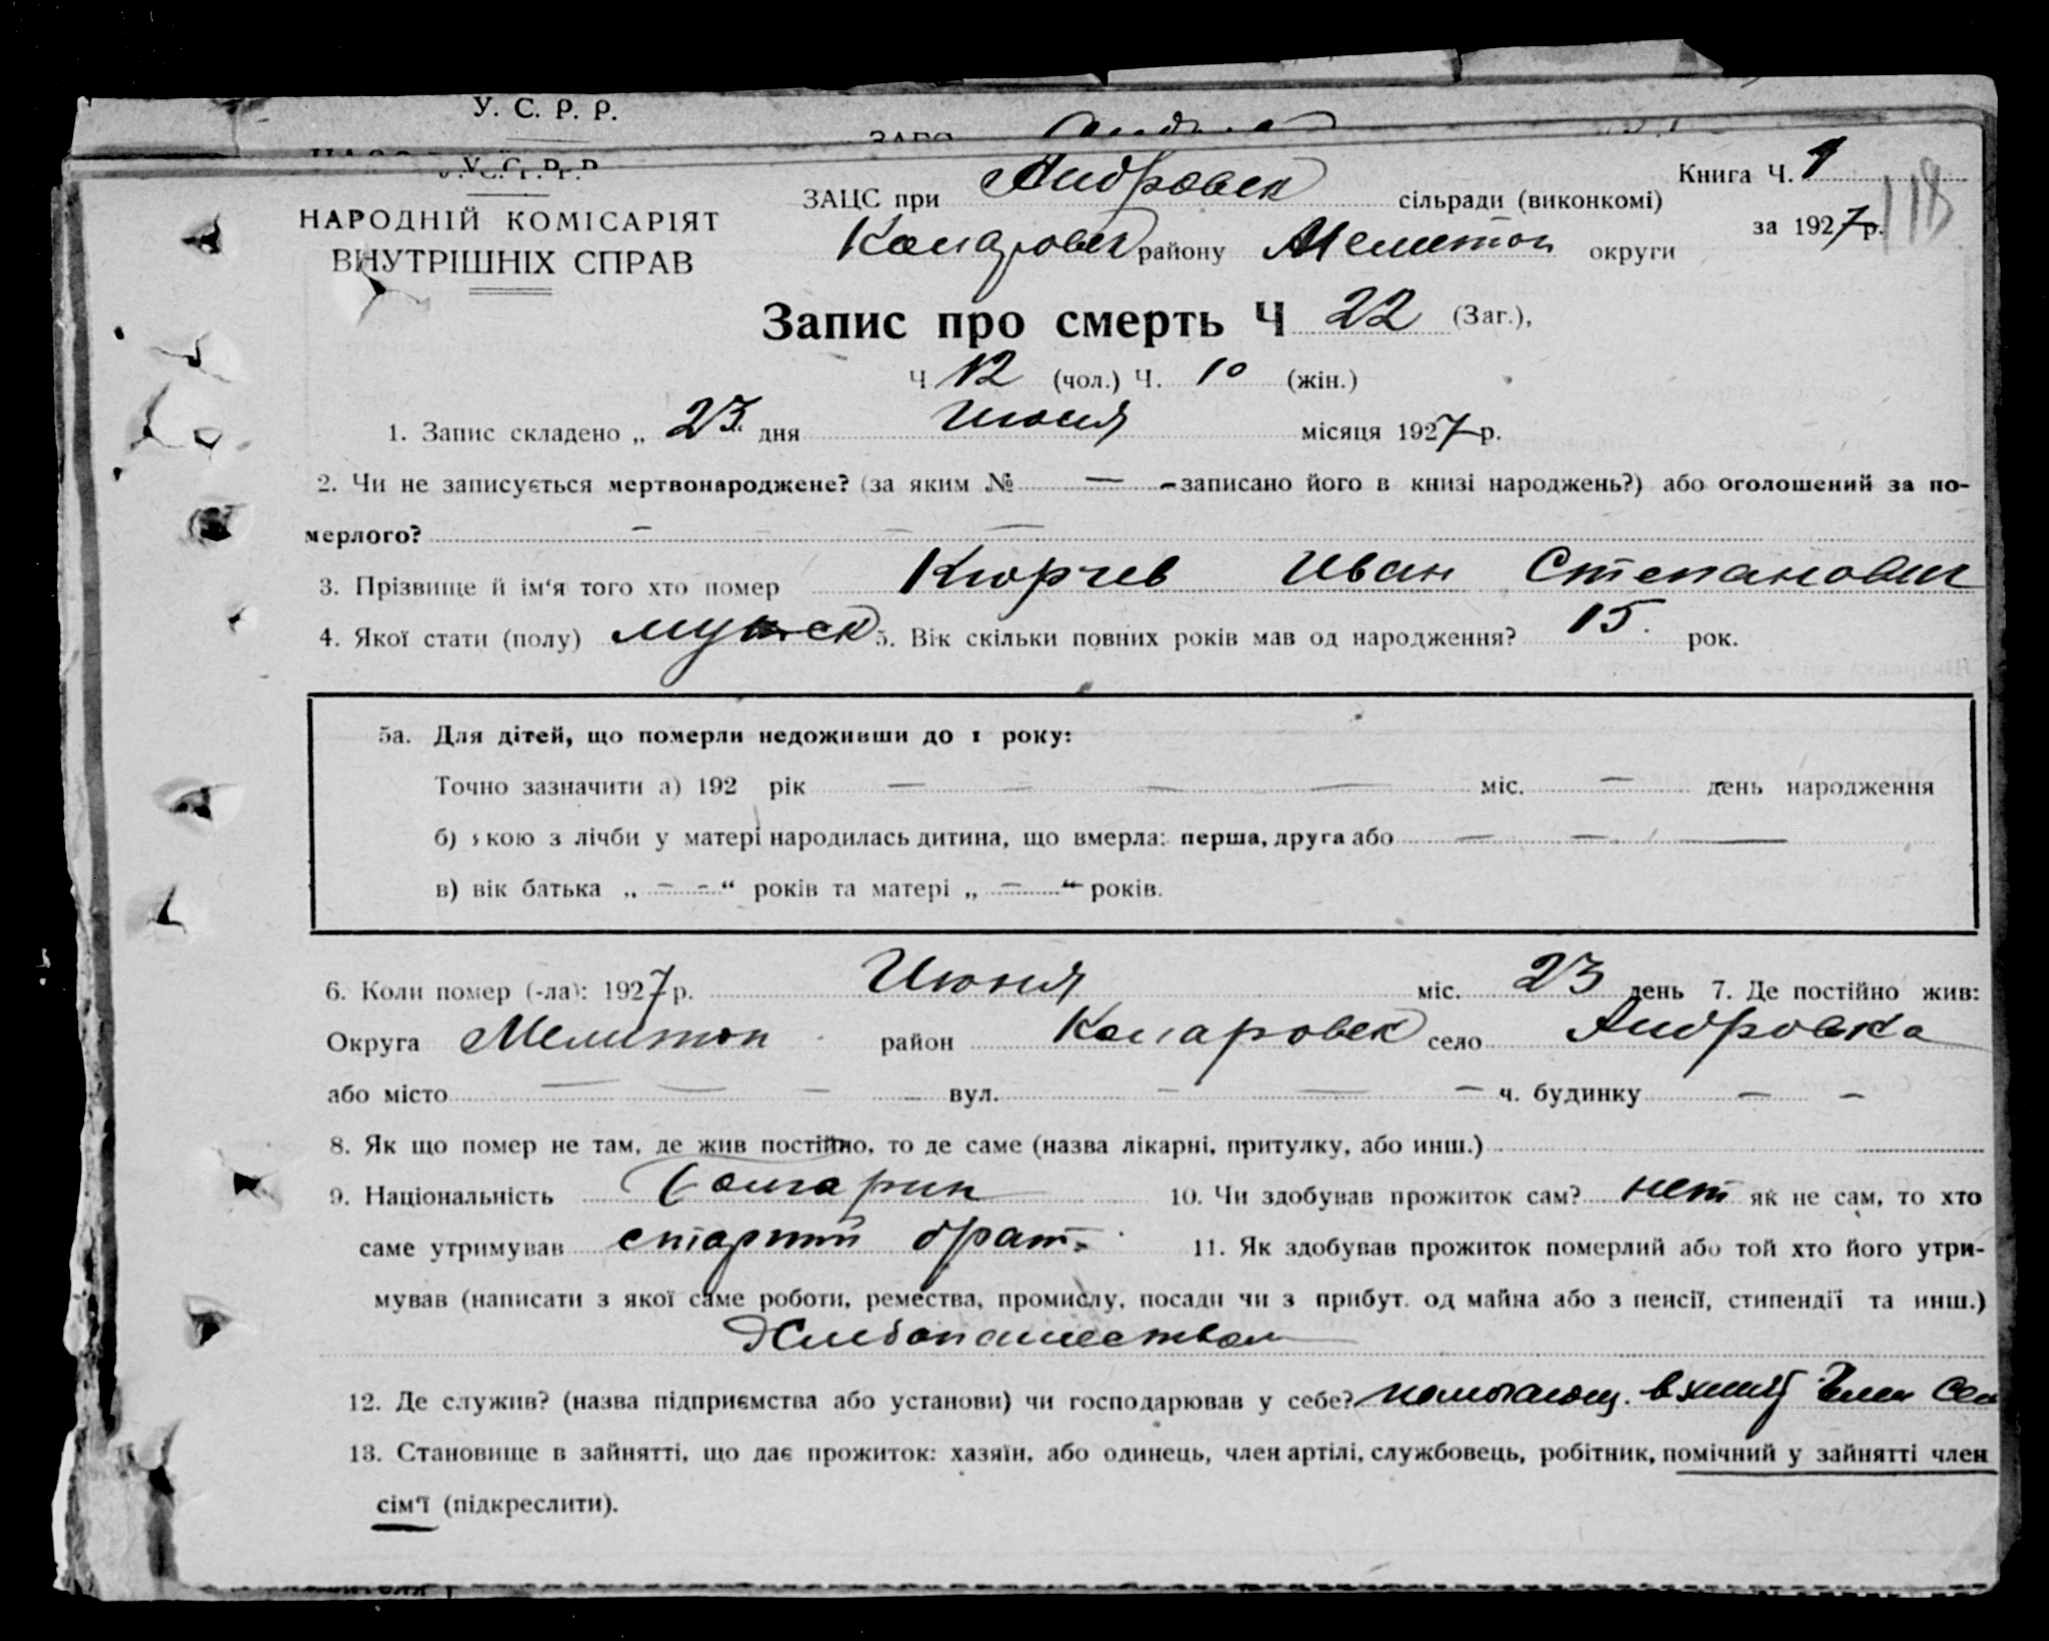 У. С. Р. Р.
У. С. Р. Р.
НАРОДНІЙ КОМІСАРІЯТ
ВНУТРІШНІХ СПРАВ
Книга Ч. 1
за 1927 р.
118
ЗАЦС при Андровск сільради (виконкомі)
району Мелитоп округи
Запис про смерть Ч 22 (Заг.),
Ч 12 (чол.) Ч. 10 (жін.)
1. Запис складено „ 23. дня Июня місяця 1927 р.
2. Чи не записується мертвонароджене? (за яким № — - записано його в книзі народжень?) або оголошений за по-
мерлого? — — —
3. Прізвище й ім‘я того хто помер Кюрчев Иван Степанович
4. Якої стати (полу) мужск 5. Вік скільки повних років мав од народження? 15. рок.
5а. Для дітей, що померли недоживши до 1 року:
Точно зазначити а) 192 рік — — — — міс. — день народження
б) кою з лічби у матері народилась дитина, що вмерла: перша, друга або — — —
в) вік батька „ — - “ років та матері „ — “ років.
6. Коли помер (-ла): 1927 р. Июня міс. 23 день 7. Де постійно жив:
Округа Мелитоп район село Андровка
або місто — — — вул. — — — ч. будинку — —
8. Як що помер не там, де жив постійно, то де саме (назва лікарні, притулку, або инш.)
9. Національність Болгарин 10. Чи здобував прожиток сам? нет як не сам, то хто
саме утримував старший брат. 11. Як здобував прожиток померлий або той хто його утри-
мував (написати з якої саме роботи, ремества, промислу, посади чи з прибут. од майна або з пенсії, стипендії та инш.)
Хлебопашеством
12. Де служив? (назва підприємства або установи) чи господарював у себе? помогающ.
13. Становище в зайнятті, що дає прожиток: хазяїн, або одинець, член артілі, службовець, робітник, помічний у зайнятті член
сім‘ї (підкреслити).